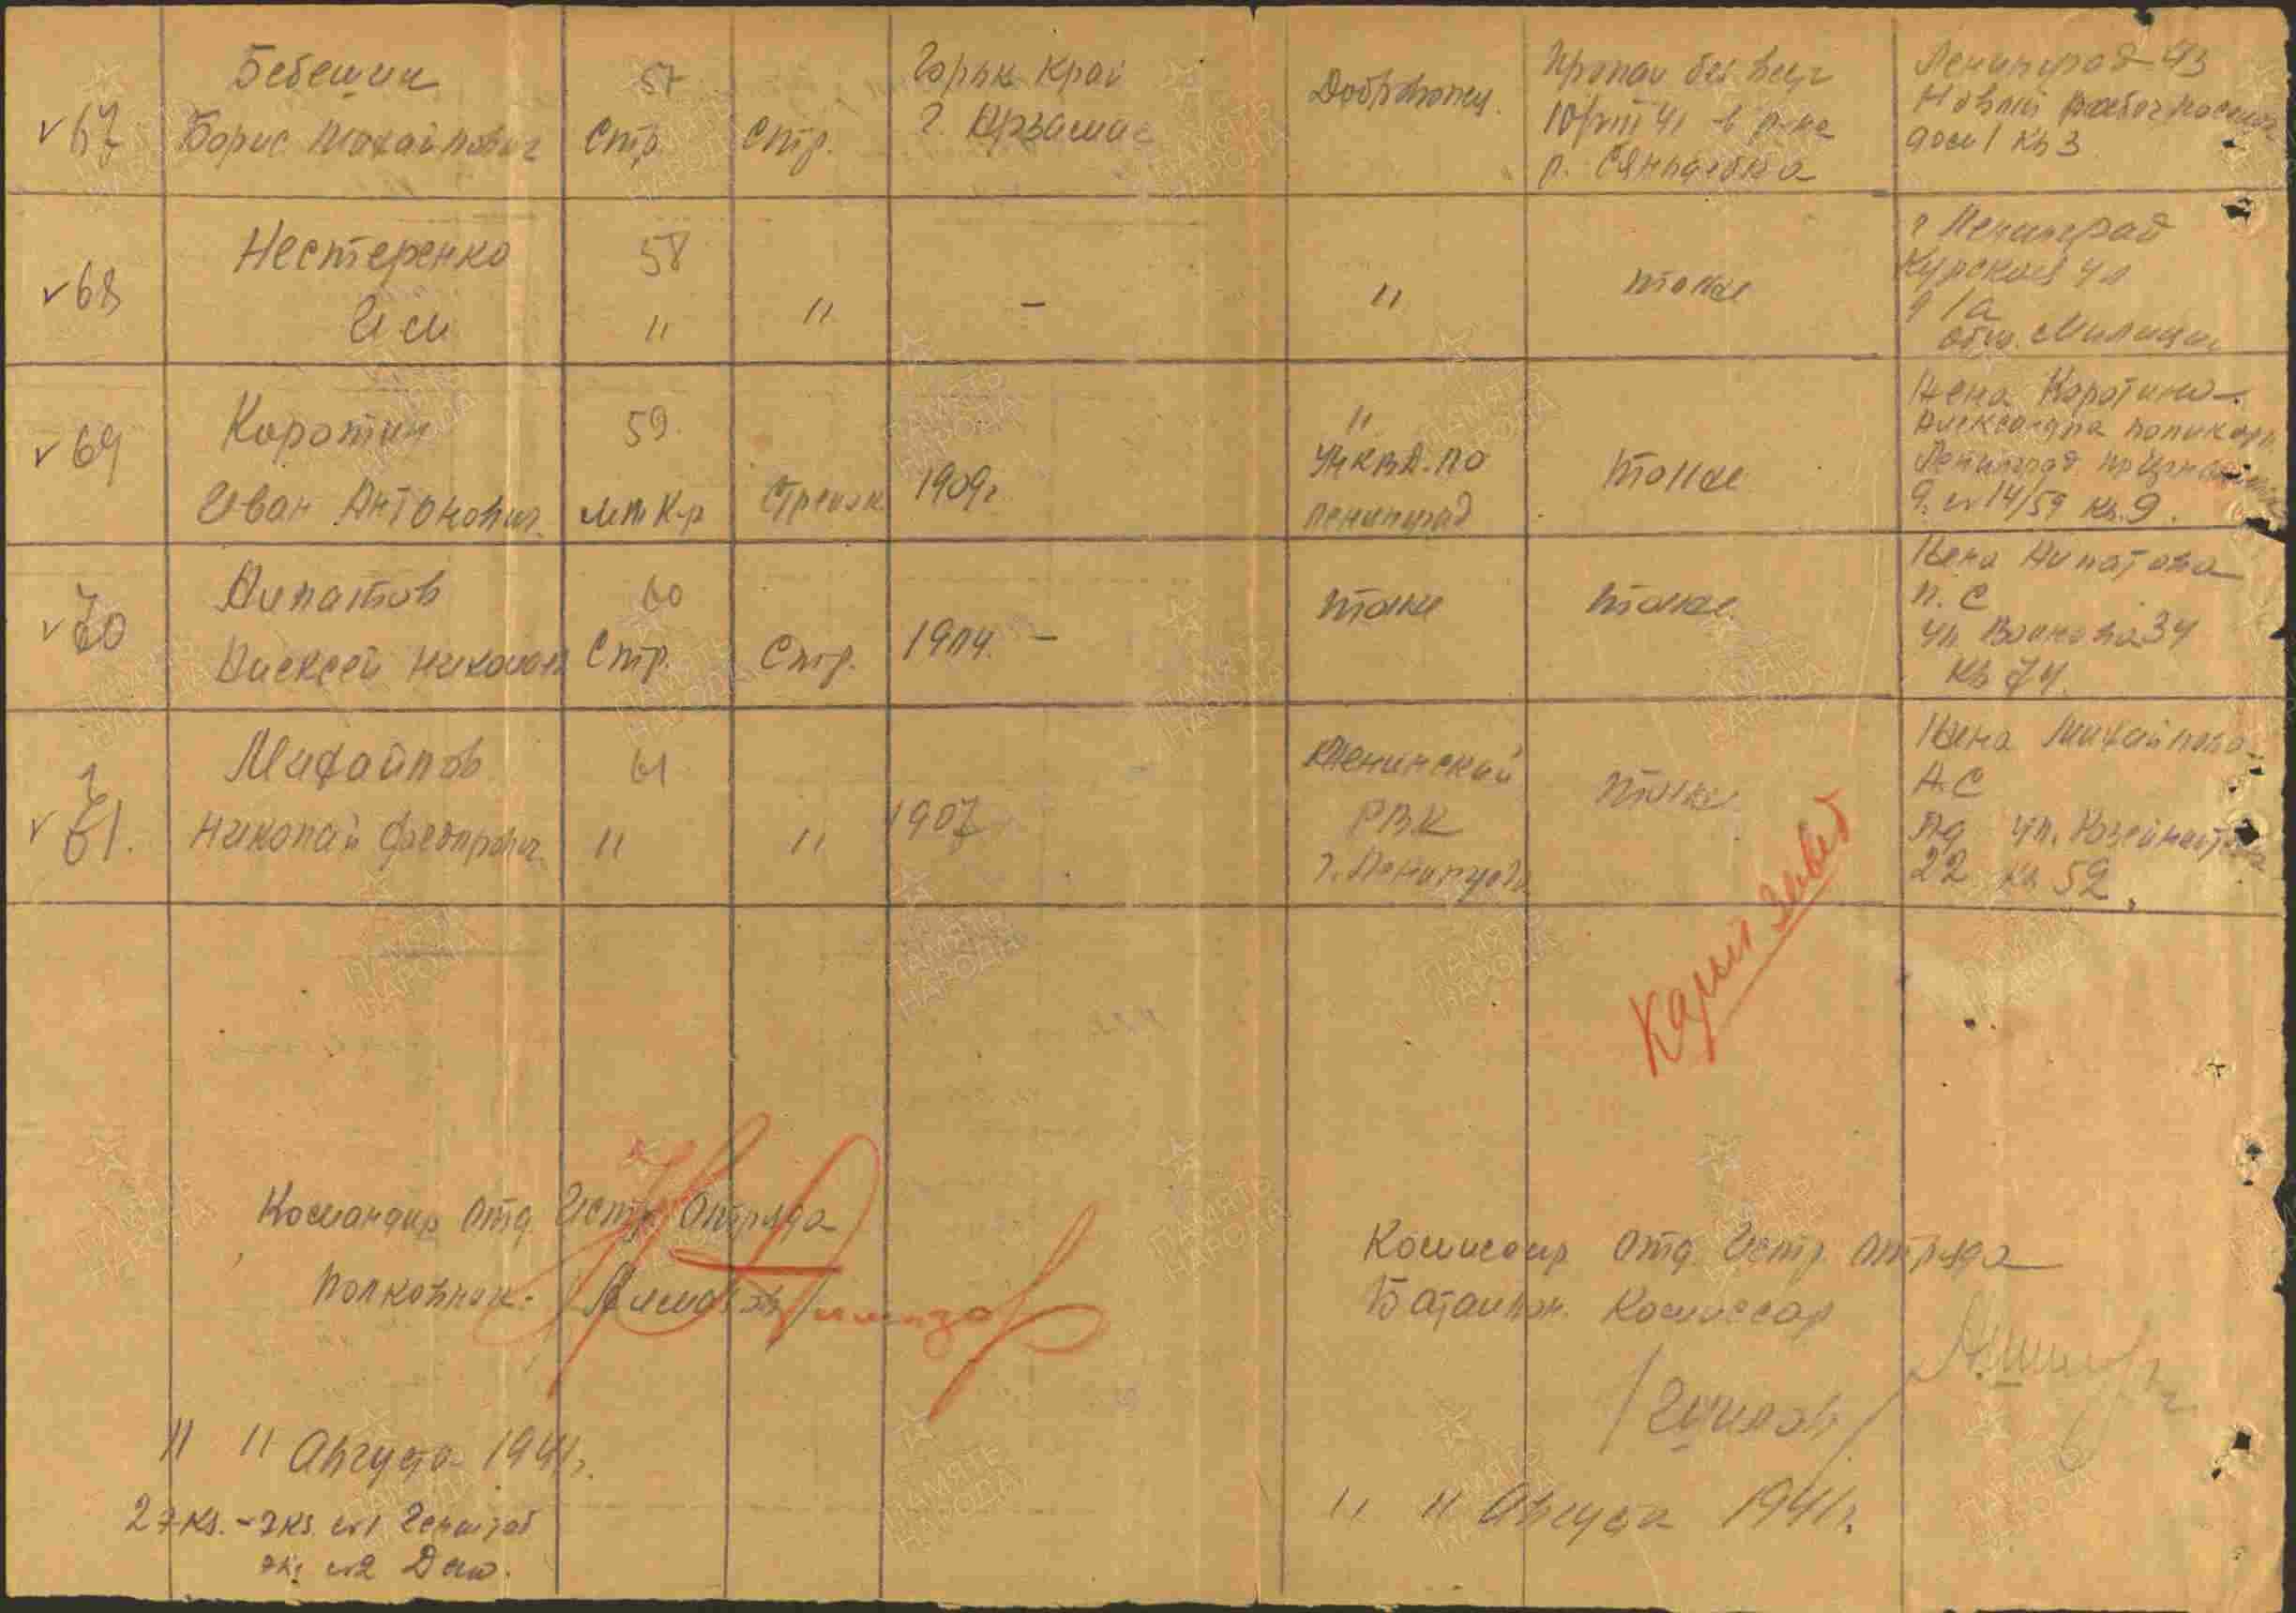 v 67
Бебешин
Борис Михайлович
57
Стр.
Стр.
Горьк Край
г. Арзамас
Доброволец.
Пропал без вест
10/VIII 41 в р-не
р.
Ленинград 43
Новый рабоч поселок
дом 1 кв 3
v 68
Нестеренко
И М
58
"
"
—
"
тоже
г Ленинград
Курская ул
д 1а
общ. Милиции
v 69
Коротин
Иван Антонович.
59.
мл К-р
Стрелок
1909г.
"
УНКВД. по
Ленинград
тоже
Жена Коротина
Александра Поликарп.
Ленинград
д. № 14/59 кв. 9.
v 70
Липатов
Алексей Николаев
60
Стр.
Стр.
1914. —
тоже
тоже.
Жена Липатова
П. С
ул Воинова 34
кв 74.
v 71.
Михайлов
Николай Федорович.
61
"
"
1907
Ленинский
РВК
г. Ленинграда
тоже
Жена Михайлова
А. С
Лд ул.
22 кв 52.
Командир отд. Истр. Отряда
Полковник.
Комиссар отд. Истр. отряда
Баталион. Комиссар
" " Августа 1941г.
2 экз. – экз. №1 Генштаб
экз №2 Дело.
" " Августа 1941г.
ПАМЯТЬ
НАРОДА